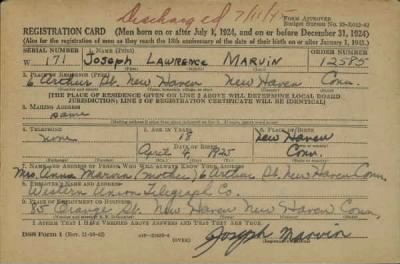 Discharged 7/11/4
Form Approved
REGISTRATION CARD (Men born on or after July 1, 1924, and on or before December 31, 1924)
(Also for the registration of men as they reach the 18th anniversary of the date of their birth on or after January 1, 1943.)
SERIAL NUMBER 1. Name (Print) ORDER NUMBER
W 171 Joseph Lawrence Marvin 12585
2. Place of Residence (Print)
6 Arthur St. New Haven New Haven Conn.
[THE PLACE OF RESIDENCE GIVEN ON LINE 2 ABOVE WILL DETERMINE LOCAL BOARD
JURISDICTION; LINE 2 OF REGISTRATION CERTIFICATE WILL BE IDENTICAL]
3. Mailing Address
Same
4. Telephone 5. Age in Years 6. Place of Birth
None 18 New Haven
Date of Birth
1925 Conn.
7. Name and Address of Person Who Will Always Know Your Address
Mrs. Anna Marvin (mother) 6 Arthur St. New Haven Conn.
8. Employer's Name and Address
Western Union Telegraph Co.
9. Place of Employment or Business
85 Orange St. New Haven New Haven Conn.
I Affirm That I Have Verified Above Answers and That They Are True.
DSS Form 1 (OVER) Joseph Marvin